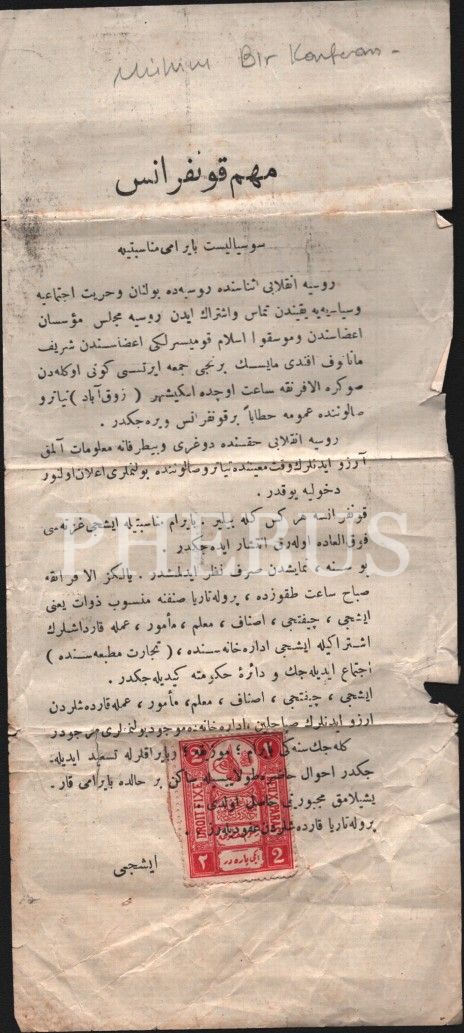 Mühim Bir Konferans -
مهم قونفرانس
سوسیالیست بایرامی مناسبتیله
روسیه انقلابی اثناسنده روسیه‌ده بولنان وحریت اجتماعیه
وسیاسیه‌یه یقیندن تماس واشتراك ایدن روسیه مجلس مؤسسان
اعضاسندن وموسقوا اسلام قومیسرلکی اعضاسندن شریف
ماناتوف افندی مایسك برنجی جمعه ایرتسی کونی اوکله‌دن
صوکره الافرنقه ساعت اوچده اسکیشهر ( زوق آباد ) تیاترو
صالوننده عمومه خطاباً برقونفرانس ویره‌جکدر .
روسیه انقلابی حقسنده دوغری وبیطرفانه معلومات آلمق
آرزو ایدنلرك وقت معیننده تیاترو صالوننده بولنملری اعلان اولنور
دخولیه یوقدر .
قونفرانسه هر کس کله بیلیر . بایرام مناسبتیله ایشجی غزته‌سی
فوق‌العاده اوله‌رق انتشار ایده‌جکدر
بو سنه ، نمایشدن صرف نظر ایدلمشدر . یالکز الافرانقه
صباح ساعت طقوزده ، پروله‌تاریا صنفنه منسوب ذوات یعنی
ایشجی ، چیفتجی ، اصناف ، معلم ، مأمور ، عمله قارداشلرك
اشتراکیله ایشجی اداره‌خانه‌سنده ، ( تجارت مطبعه‌سنده )
اجتماع ایدیله‌جك و دائرۀ حکومته کیدیله‌جکدر .
ایشجی ، چیفتجی ، اصناف ، معلم ، مأمور ، عمله قارده‌شلردن
ارزو ایدنلرك صباحلین اداره‌خانه‌ده موجود بولنملری مرجودر
کله‌جك سنه‌کی بایرام ؛ موزیقه ، وبایراقلرله تسعید ایدیله‌-
جکدر احوال حاضره طولاییسیله ساکن بر حالده بایرامی قار-
یشیلامق مجبوریتی حاصل اولدی
پروله‌تاریا قارده‌شلردن عفو دیلرز .
ایشجی
DROIT FIXE
2
٢
ایکی پاره‌در
2
PHEBUS